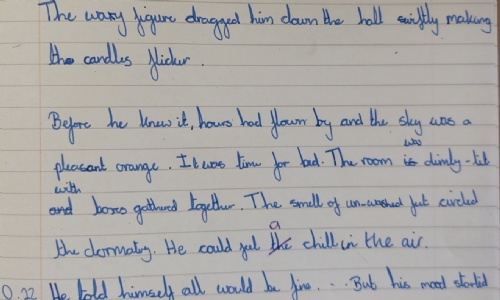 The waxy figure dragged him down the hall swiftly making
the candles flicker.
Before he knew it, hours had flown by and the sky was a
pleasant orange. It was time for bed. The room is was dimly-lit
and with boxes gathered together. The smell of un-washed feet circled
the dormatory. He could feel the a chill in the air.
He told himself all would be fine... But his mood started